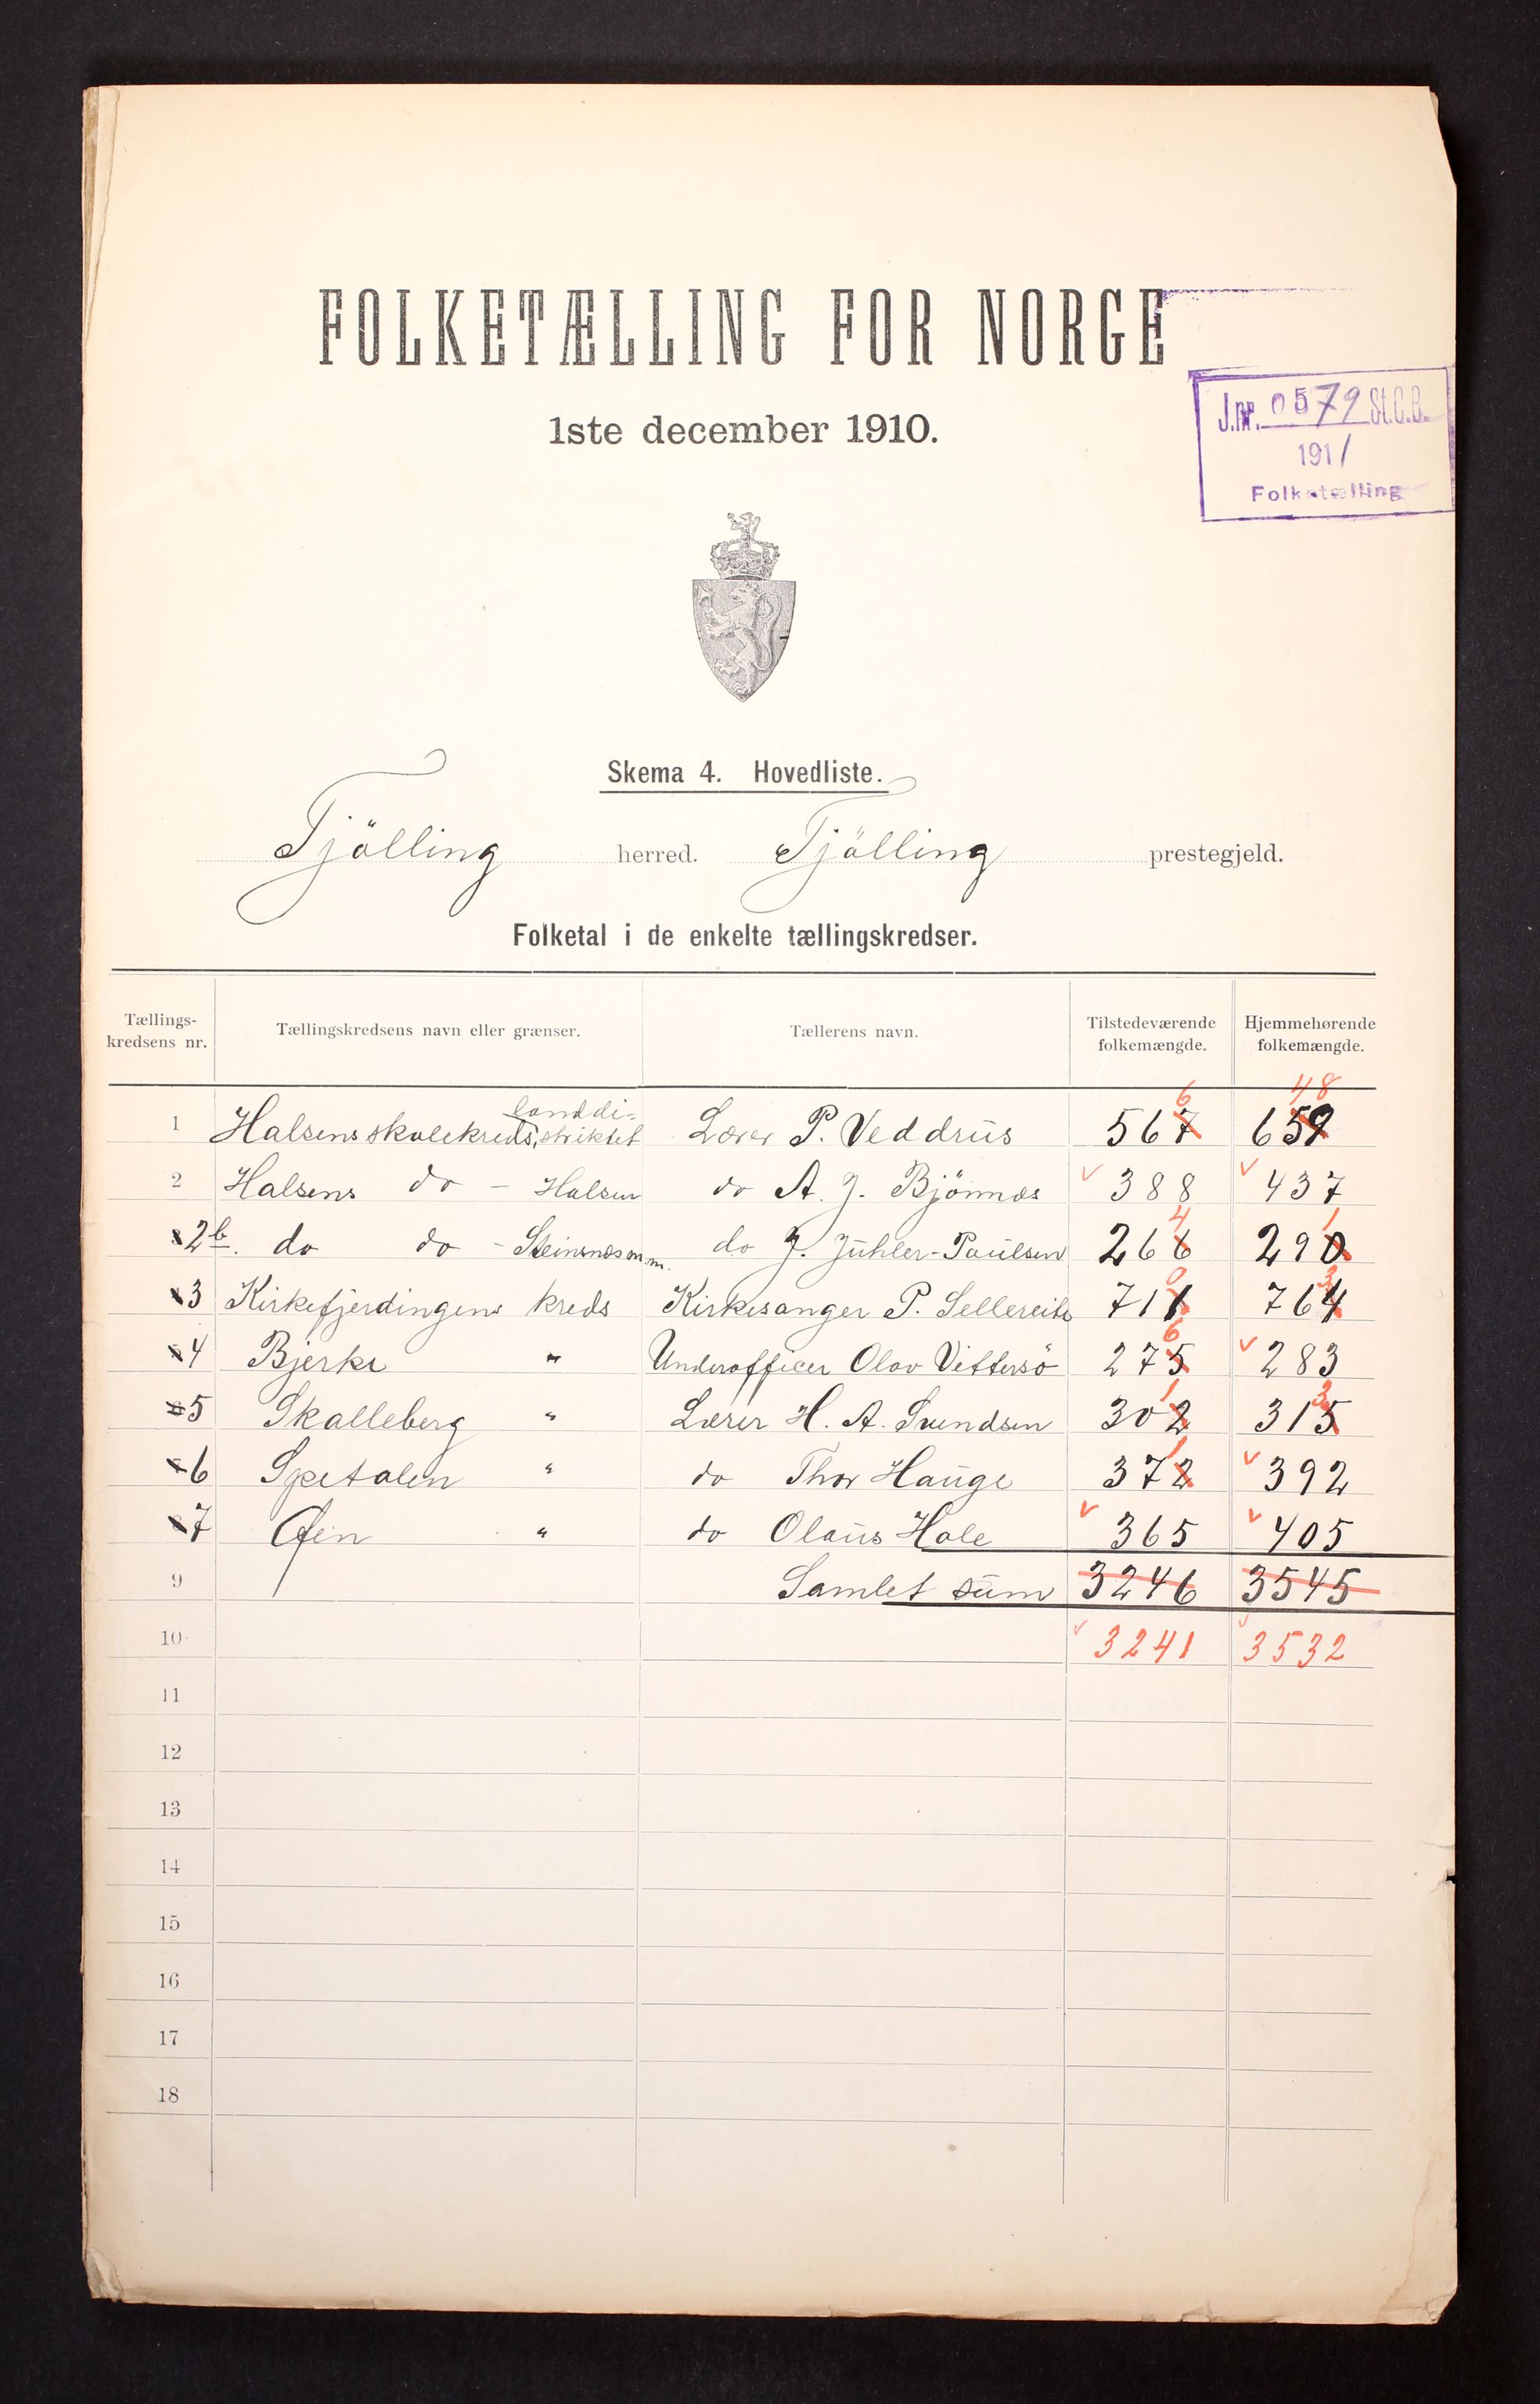 FOLKETÆLLING FOR NORGE
J.nr. 0579 St.C.B.
1911
Folketælling
1ste december 1910.
Skema 4. Hovedliste.
Tjölling herred. Tjölling prestegjeld.
Folketal i de enkelte tællingskredser.
Tællings-kredsens nr. Tællingskredsens navn eller grænser. Tællerens navn. Tilstedeværende folkemængde. Hjemmehørende folkemængde.
6 48
landdi-
1 Halsens skolekreds, striktet Lærer P. Veddrus 567 659
2 Halsens do - Halsen do A. J. Bjönnæs 388 437
4 1
2b. do do - Steinsnæs m.m. do J. Juhler-Paulsen 266 290
0 3
3 Kirkefjerdingens kreds Kirkesanger P. Sellereite 711 764
6
4 Bjerke " Underofficer Olav Vittersö 275 283
1 3
5 Skalleberg " Lærer H. A. Svendsen 302 315
1
6 Spetalen " do Thor Hauge 372 392
7 Øien " do Olaus Hole 365 405
9 Samlet sum 3246 3545
10 3241 3532
11
12
13
14
15
16
17
18